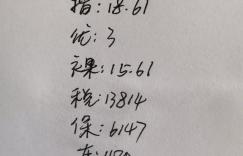 指:18.61
优:3
课:15.61
税:13814
保:6147